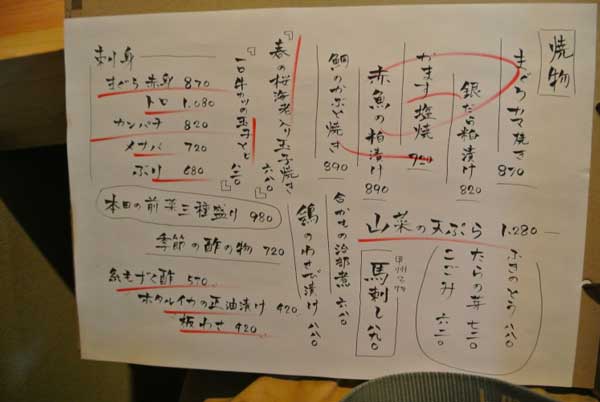 焼物
まぐろカマ焼き 870
銀だら粕漬け 820
かます塩焼
赤魚の粕漬け 890
鯛のかぶと焼き 890
春の桜海老入り玉子焼き 六八〇
刺身
まぐろ赤身 870
トロ 1.080
カンパチ 820
メバル 720
ぶり 680
山菜の天ぷら 1.280
ふきのとう 八八〇
たらの芽 七三〇
こごみ 六三〇
甲州名物
馬刺し 八八〇
合がもの治部煮 六八〇
鶏のわさび漬け 八八〇
本日の前菜三種盛り 980
季節の酢の物 720
糸もずく酢 570
ホタルイカの正油漬け 420
板わさ 420